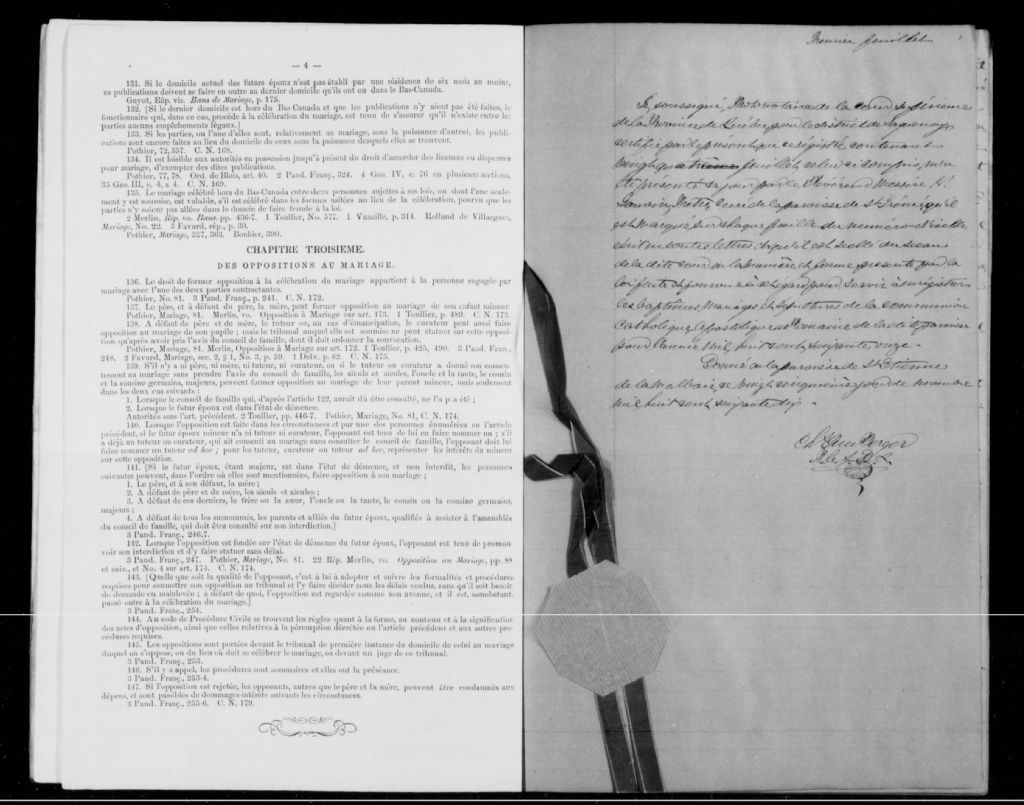 — 4 —
131. Si le domicile actuel des futurs époux n'est pas établi par une résidence de six mois au moins,
ces publications doivent se faire en outre au dernier domicile qu'ils ont eu dans le Bas-Canada.
Guyot, Rép. vis. Bans de Mariage, p. 175.
132. [Si le dernier domicile est hors du Bas-Canada et que les publications n'y aient pas été faites, le
fonctionnaire qui, dans ce cas, procède à la célébration du mariage, est tenu de s'assurer qu'il n'existe entre les
parties aucuns empêchements légaux.]
133. Si les parties, ou l'une d'elles sont, relativement au mariage, sous la puissance d'autrui, les publi-
cations sont encore faites au lieu du domicile de ceux sous la puissance desquels elles se trouvent.
Pothier, 72, 357. C. N. 168.
134. Il est loisible aux autorités en possession jusqu'à présent du droit d'accorder des licences ou dispenses
pour mariage, d'exempter des dites publications.
Pothier, 77, 78. Ord. de Blois, art. 40. 2 Pand. Franç., 324. 4 Geo. IV, c. 76 en plusieurs sections,
35 Geo. III, c. 4, s. 4. C. N. 169.
135. Le mariage célébré hors du Bas-Canada entre deux personnes sujettes à ses lois, ou dont l'une seule-
ment y est soumise, est valable, s'il est célébré dans les formes usitées au lieu de la célébration, pourvu que les
parties n'y soient pas allées dans le dessein de faire fraude à la loi.
2 Merlin, Rép. vo. Bans. pp. 436-7. 1 Toullier, No. 577. 1 Vazeille, p. 314. Rolland de Villargues,
Mariage, No. 22. 3 Favard, rép., p. 30.
Pothier, Mariage, 327, 363. Bouhier, 390.
CHAPITRE TROISIEME.
DES OPPOSITIONS AU MARIAGE.
136. Le droit de former opposition à la célébration du mariage appartient à la personne engagée par
mariage avec l'une des deux parties contractantes.
Pothier, No. 81. 3 Pand. Franç., p. 241. C. N. 172.
137. Le père, et à défaut du père, la mère, peut former opposition au mariage de son enfant mineur.
Pothier, Mariage, 81. Merlin, vo. Opposition à Mariage sur art. 173. 1 Toullier, p. 489. C. N. 173.
138. A défaut de père et de mère, le tuteur ou, au cas d'émancipation, le curateur peut aussi faire
opposition au mariage de son pupille ; mais le tribunal auquel elle est soumise ne peut statuer sur cette opposi-
tion qu'après avoir pris l'avis du conseil de famille, dont il doit ordonner la convocation.
Pothier, Mariage, 81. Merlin, Opposition à Mariage sur art. 172. 1 Toullier, p. 425, 490. 3 Pand. Fran.,
248. 2 Favard, Mariage, sec. 2, § 1, No. 3, p. 59. 1 Delv. p. 62. C. N. 175.
139. S'il n'y a ni père, ni mère, ni tuteur, ni curateur, ou si le tuteur ou curateur a donné son consen-
tement au mariage sans prendre l'avis du conseil de famille, les aïeuls et aïeules, l'oncle et la tante, le cousin
et la cousine germains, majeurs, peuvent former opposition au mariage de leur parent mineur, mais seulement
dans les deux cas suivants :
1. Lorsque le conseil de famille qui, d'après l'article 122, aurait dû être consulté, ne l'a pas été ;
2. Lorsque le futur époux est dans l'état de démence.
Autorités sous l'art. précédent. 2 Toullier, pp. 446-7. Pothier, Mariage, No. 81, C. N. 174.
140. Lorsque l'opposition est faite dans les circonstances et par une des personnes énumérées en l'article
précédent, si le futur époux mineur n'a ni tuteur ni curateur, l'opposant est tenu de lui en faire nommer un ; s'il
a déjà un tuteur ou curateur, qui ait consenti au mariage sans consulter le conseil de famille, l'opposant doit lui
faire nommer un tuteur ad hoc ; pour les tuteur, curateur ou tuteur ad hoc, représenter les intérêts du mineur
sur cette opposition.
141. [Si le futur époux, étant majeur, est dans l'état de démence, et non interdit, les personnes
suivantes peuvent, dans l'ordre où elles sont mentionnées, faire opposition à son mariage ;
1. Le père, et à son défaut, la mère ;
2. A défaut de père et de mère, les aïeuls et aïeules ;
3. A défaut de ces derniers, le frère ou la sœur, l'oncle ou la tante, le cousin ou la cousine germains,
majeurs ;
4. A défaut de tous les susnommés, les parents et alliés du futur époux, qualifiés à assister à l'assemblée
du conseil de famille, qui doit être consulté sur son interdiction.]
3 Pand. Franç., 246,7.
142. Lorsque l'opposition est fondée sur l'état de démence du futur époux, l'opposant est tenu de promou-
voir son interdiction et d'y faire statuer sans délai.
3 Pand. Franç., 247. Pothier, Mariage, No. 81. 22 Rép. Merlin, vo. Opposition au Mariage, pp. 88
et suiv., et No. 4 sur art. 174. C. N. 174.
143. [Quelle que soit la qualité de l'opposant, c'est à lui à adopter et suivre les formalités et procédures
requises pour soumettre son opposition au tribunal et l'y faire décider sous les délais voulus, sans qu'il soit besoin
de demande en mainlevée ; à défaut de quoi, l'opposition est regardée comme non avenue, et il est, nonobstant,
passé outre à la célébration du mariage.]
3 Pand. Franç., 254.
144. Au code de Procédure Civile se trouvent les règles quant à la forme, au contenu et à la signification
des actes d'opposition, ainsi que celles relatives à la péremption décrétée en l'article précédent et aux autres pro-
cédures requises.
145. Les oppositions sont portées devant le tribunal de première instance du domicile de celui au mariage
duquel on s'oppose, ou du lieu où doit se célébrer le mariage, ou devant un juge de ce tribunal.
3 Pand. Franç., 253.
146. S'il y a appel, les procédures sont sommaires et elles ont la préséance.
3 Pand. Franç., 253-4.
147. Si l'opposition est rejetée, les opposants, autres que le père et la mère, peuvent être condamnés aux
dépens, et sont passibles de dommages-intérêts suivants les circonstances.
3 Pand. Franç., 255-6. C. N. 179.
Premier feuillet
Je soussigné, Protonotaire de la cour Supérieure
de la Province de Québec, pour le district de Saguenay,
certifie par le présent que ce registre contenant
vingt quatre feuillets, celui-ci compris, m'a
été présenté ce jour par le Révérend Messire
Prêtre, Curé de la paroisse de qu'il
est marqué sur chaque feuille du numéro d'icelle
écrit en toutes lettres, et qu'il est scellé du sceau
de la dite cour de la manière et forme prescrite par la
loi servir à enregistrer
les Baptêmes, Mariages et Sépultures de la communion
Catholique, Apostolique et Romaine de la dite paroisse
pour l'année mil huit cent soixante onze.
Donné en la paroisse de St Etienne
de la Malbaie, ce vingt cinquième jour de novembre
mil huit cent soixante dix.